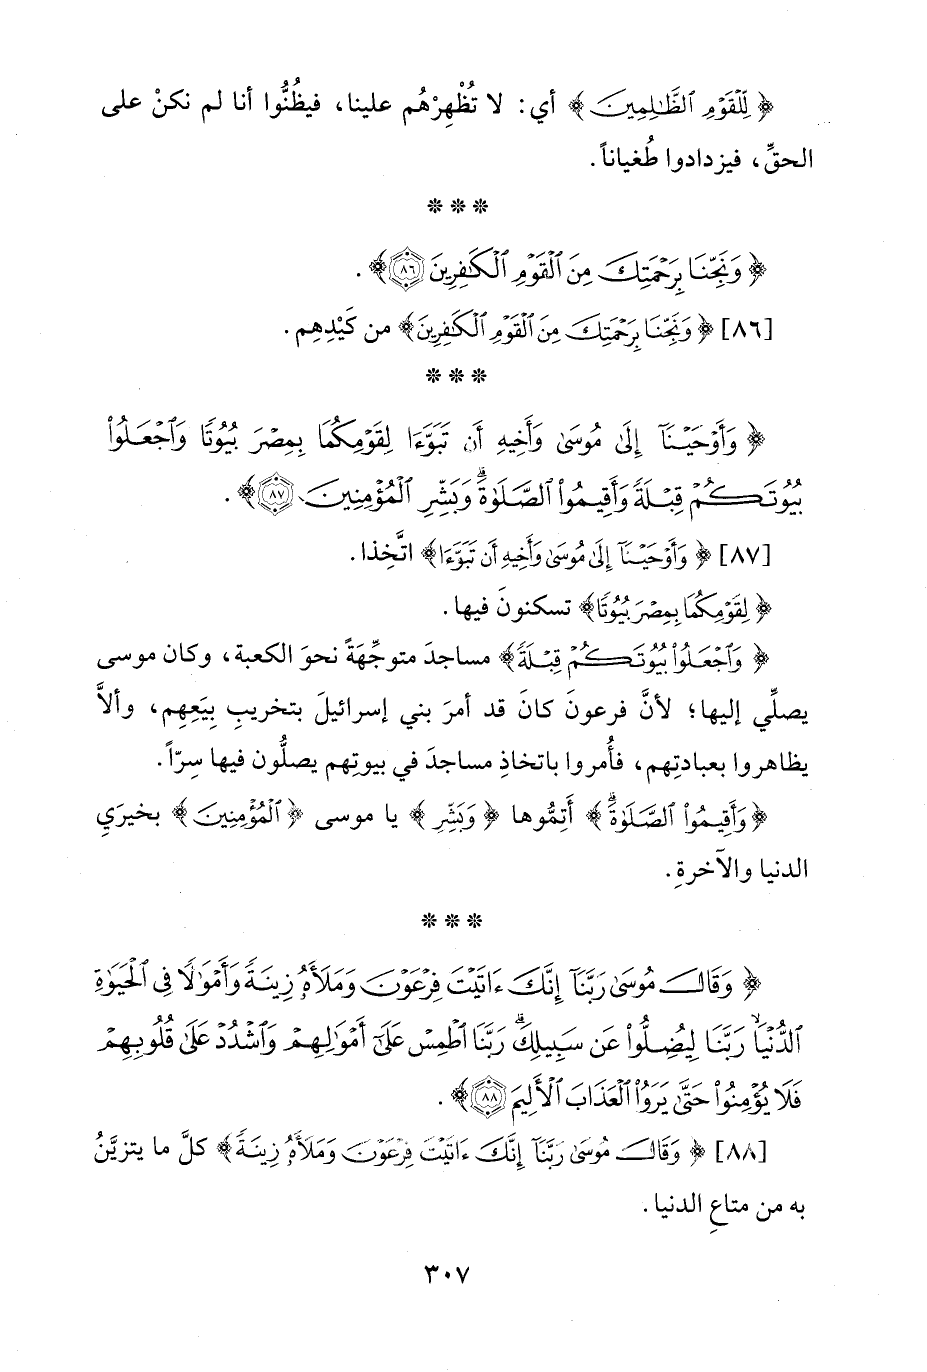 ﴿ لِّلْقَوْمِ ٱلظَّٰلِمِينَ ﴾ أي: لا تُظْهِرْهُم علينا، فيظُنُّوا أنا لم نكنْ على
الحقِّ، فيزدادوا طُغياناً.
* * *
﴿ وَنَجِّنَا بِرَحْمَتِكَ مِنَ ٱلْقَوْمِ ٱلْكَٰفِرِينَ ٨٦ ﴾ .
[٨٦] ﴿ وَنَجِّنَا بِرَحْمَتِكَ مِنَ ٱلْقَوْمِ ٱلْكَٰفِرِينَ ﴾ من كَيْدِهِم.
* * *
﴿ وَأَوْحَيْنَآ إِلَىٰ مُوسَىٰ وَأَخِيهِ أَن تَبَوَّءَا لِقَوْمِكُمَا بِمِصْرَ بُيُوتًا وَٱجْعَلُوا۟
بُيُوتَكُمْ قِبْلَةً وَأَقِيمُوا۟ ٱلصَّلَوٰةَ ۗ وَبَشِّرِ ٱلْمُؤْمِنِينَ ٨٧ ﴾ .
[٨٧] ﴿ وَأَوْحَيْنَآ إِلَىٰ مُوسَىٰ وَأَخِيهِ أَن تَبَوَّءَا ﴾ اتَّخِذا.
﴿ لِقَوْمِكُمَا بِمِصْرَ بُيُوتًا ﴾ تسكنونَ فيها.
﴿ وَٱجْعَلُوا۟ بُيُوتَكُمْ قِبْلَةً ﴾ مساجدَ متوجِّهَةً نحوَ الكعبة، وكان موسى
يصلِّي إليها؛ لأنَّ فرعونَ كانَ قد أمرَ بني إسرائيلَ بتخريبِ بِيَعِهِم، وألاَّ
يظاهروا بعبادتِهم، فأُمروا باتخاذِ مساجدَ في بيوتِهم يصلُّون فيها سِرّاً.
﴿ وَأَقِيمُوا۟ ٱلصَّلَوٰةَ ۗ ﴾ أَتِمُّوها ﴿ وَبَشِّرِ ﴾ يا موسى ﴿ ٱلْمُؤْمِنِينَ ﴾ بخيرَيِ
الدنيا والآخرةِ.
* * *
﴿ وَقَالَ مُوسَىٰ رَبَّنَآ إِنَّكَ ءَاتَيْتَ فِرْعَوْنَ وَمَلَأَهُۥ زِينَةً وَأَمْوَٰلًا فِى ٱلْحَيَوٰةِ
ٱلدُّنْيَا ۙ رَبَّنَا لِيُضِلُّوا۟ عَن سَبِيلِكَ ۖ رَبَّنَا ٱطْمِسْ عَلَىٰٓ أَمْوَٰلِهِمْ وَٱشْدُدْ عَلَىٰ قُلُوبِهِمْ
فَلَا يُؤْمِنُوا۟ حَتَّىٰ يَرَوُا۟ ٱلْعَذَابَ ٱلْأَلِيمَ ٨٨ ﴾ .
[٨٨] ﴿ وَقَالَ مُوسَىٰ رَبَّنَآ إِنَّكَ ءَاتَيْتَ فِرْعَوْنَ وَمَلَأَهُۥ زِينَةً ﴾ كلَّ ما يتزيَّنُ
به من متاعِ الدنيا.
٣٠٧